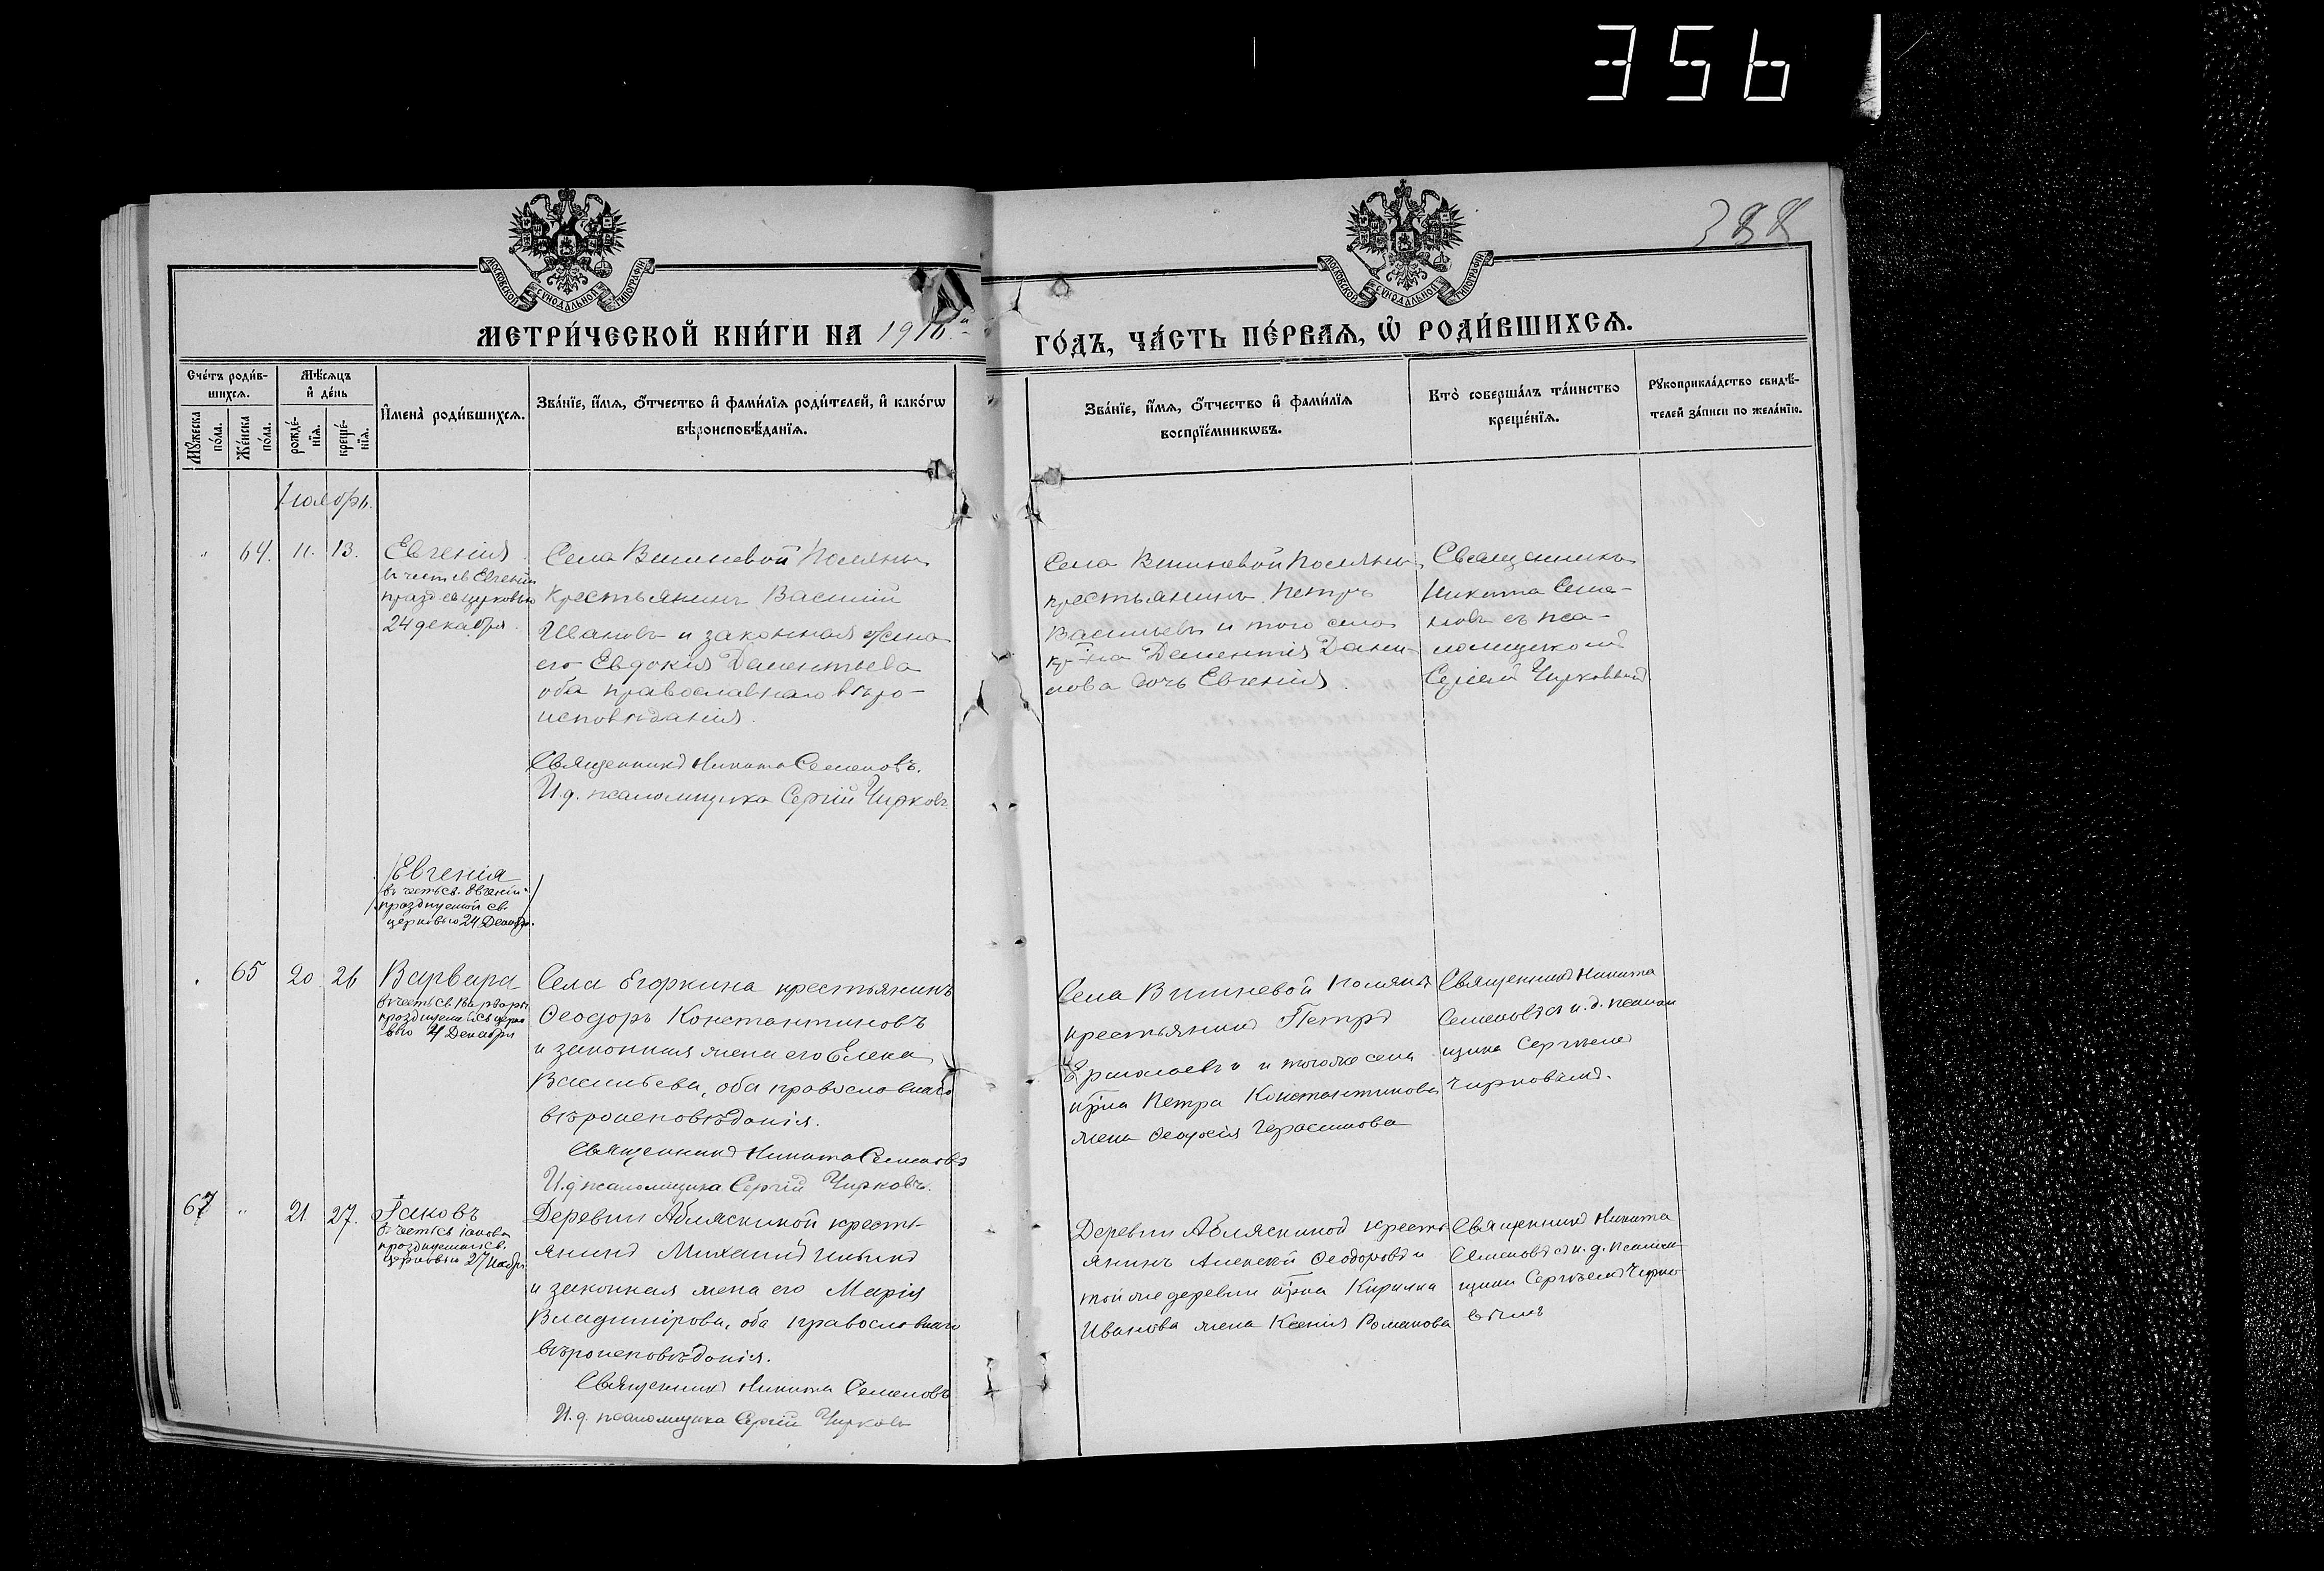 356
388
МОСКОВСКОЙ СѴНОДАЛЬНОЙ ТИПОГРАФІИ
МОСКОВСКОЙ СѴНОДАЛЬНОЙ ТИПОГРАФІИ
МЕТРИ́ЧЕСКОЙ КНИ́ГИ НА 1916 й
ГО́ДЪ, ЧА́СТЬ ПЕ́РВАѦ, Ѡ҆ РОДИ́ВШИХСѦ.
Сче́тъ роди́в-
шихсѧ.
Мꙋ́жеска
по́ла.
Же́нска
по́ла.
Мѣ́сѧцъ
и҆ де́нь
рожде́-
нїѧ.
креще́-
нїѧ.
И҆мена̀ роди́вшихсѧ.
Зва́нїе, и҆́мѧ, ѻ҆́тчество и҆ фами́лїѧ роди́телей, и҆ како́гѡ
вѣроисповѣ́данїѧ.
Зва́нїе, и҆́мѧ, ѻ҆́тчество и҆ фами́лїѧ
воспрїе́мникѡвъ.
Кто̀ соверша́лъ та́инство
креще́нїѧ.
Рꙋкоприкла́дство свидѣ́-
телей за́писи по жела́нїю.
Ноябрь.
" 64. 11. 13. Евгенія
въ честь св Евгеніи
празд св церковью
24 декабря.
Села Вишневой Поляны
крестьянинъ Василій
Ивановъ и законная жена
его Евдокія Дементьева
оба православнаго вѣро-
исповѣданія.
Священникъ Никита Семеновъ.
И.д. псаломщика Сергій Чирковъ.
Села Вишневой Поляны
крестьянинъ Петръ
Васильевъ и того села
кр-на Дементія Дани-
лова дочь Евгенія.
Священникъ
Никита Семе-
новъ съ пса-
ломщикомъ
Сергіей Чирковымъ.
Евгенія
въ честь св. Евгеніи
празднуемой св.
церковью 24 Декабр.
65 20 26 Варвара
въ честь св. Варвары
празднуемой св церко
вью 4 Декабря
Села Егоркина крестьянинъ
Ѳеодоръ Константиновъ
и законная жена его Елена
Васильева, оба православнаго
вѣроисповѣданія.
Священникъ Никита Семеновъ
И.д. псаломщика Сергій Чирковъ.
Села Вишневой Поляны
крестьянинъ Петръ
Ермолаевъ и тогоже села
кр-на Петра Константинова
жена Ѳеодосія Герасимова
Священникъ Никита
Семеновъ съ и. д. псалом
щика Сергѣемъ
Чирковымъ.
67 " 21 27. Іаковъ
въ честь св Іакова
празднуемаго св.
церковью 27 Ноябр
Деревни Абляскиной кресть-
янинъ Михаилъ Ильинъ
и законная жена его Марія
Владимірова, оба православнаго
вѣроисповѣданія.
Священникъ Никита Семеновъ
И.д. псаломщика Сергій Чирковъ
Деревни Абляскиной кресть
янинъ Алексѣй Ѳеодоровъ и
той же деревни кр-на Кирилла
Иванова жена Ксенія Романова
Священникъ Никита
Семеновъ съ и. д. псалом-
щика Сергѣемъ Чирко-
вымъ